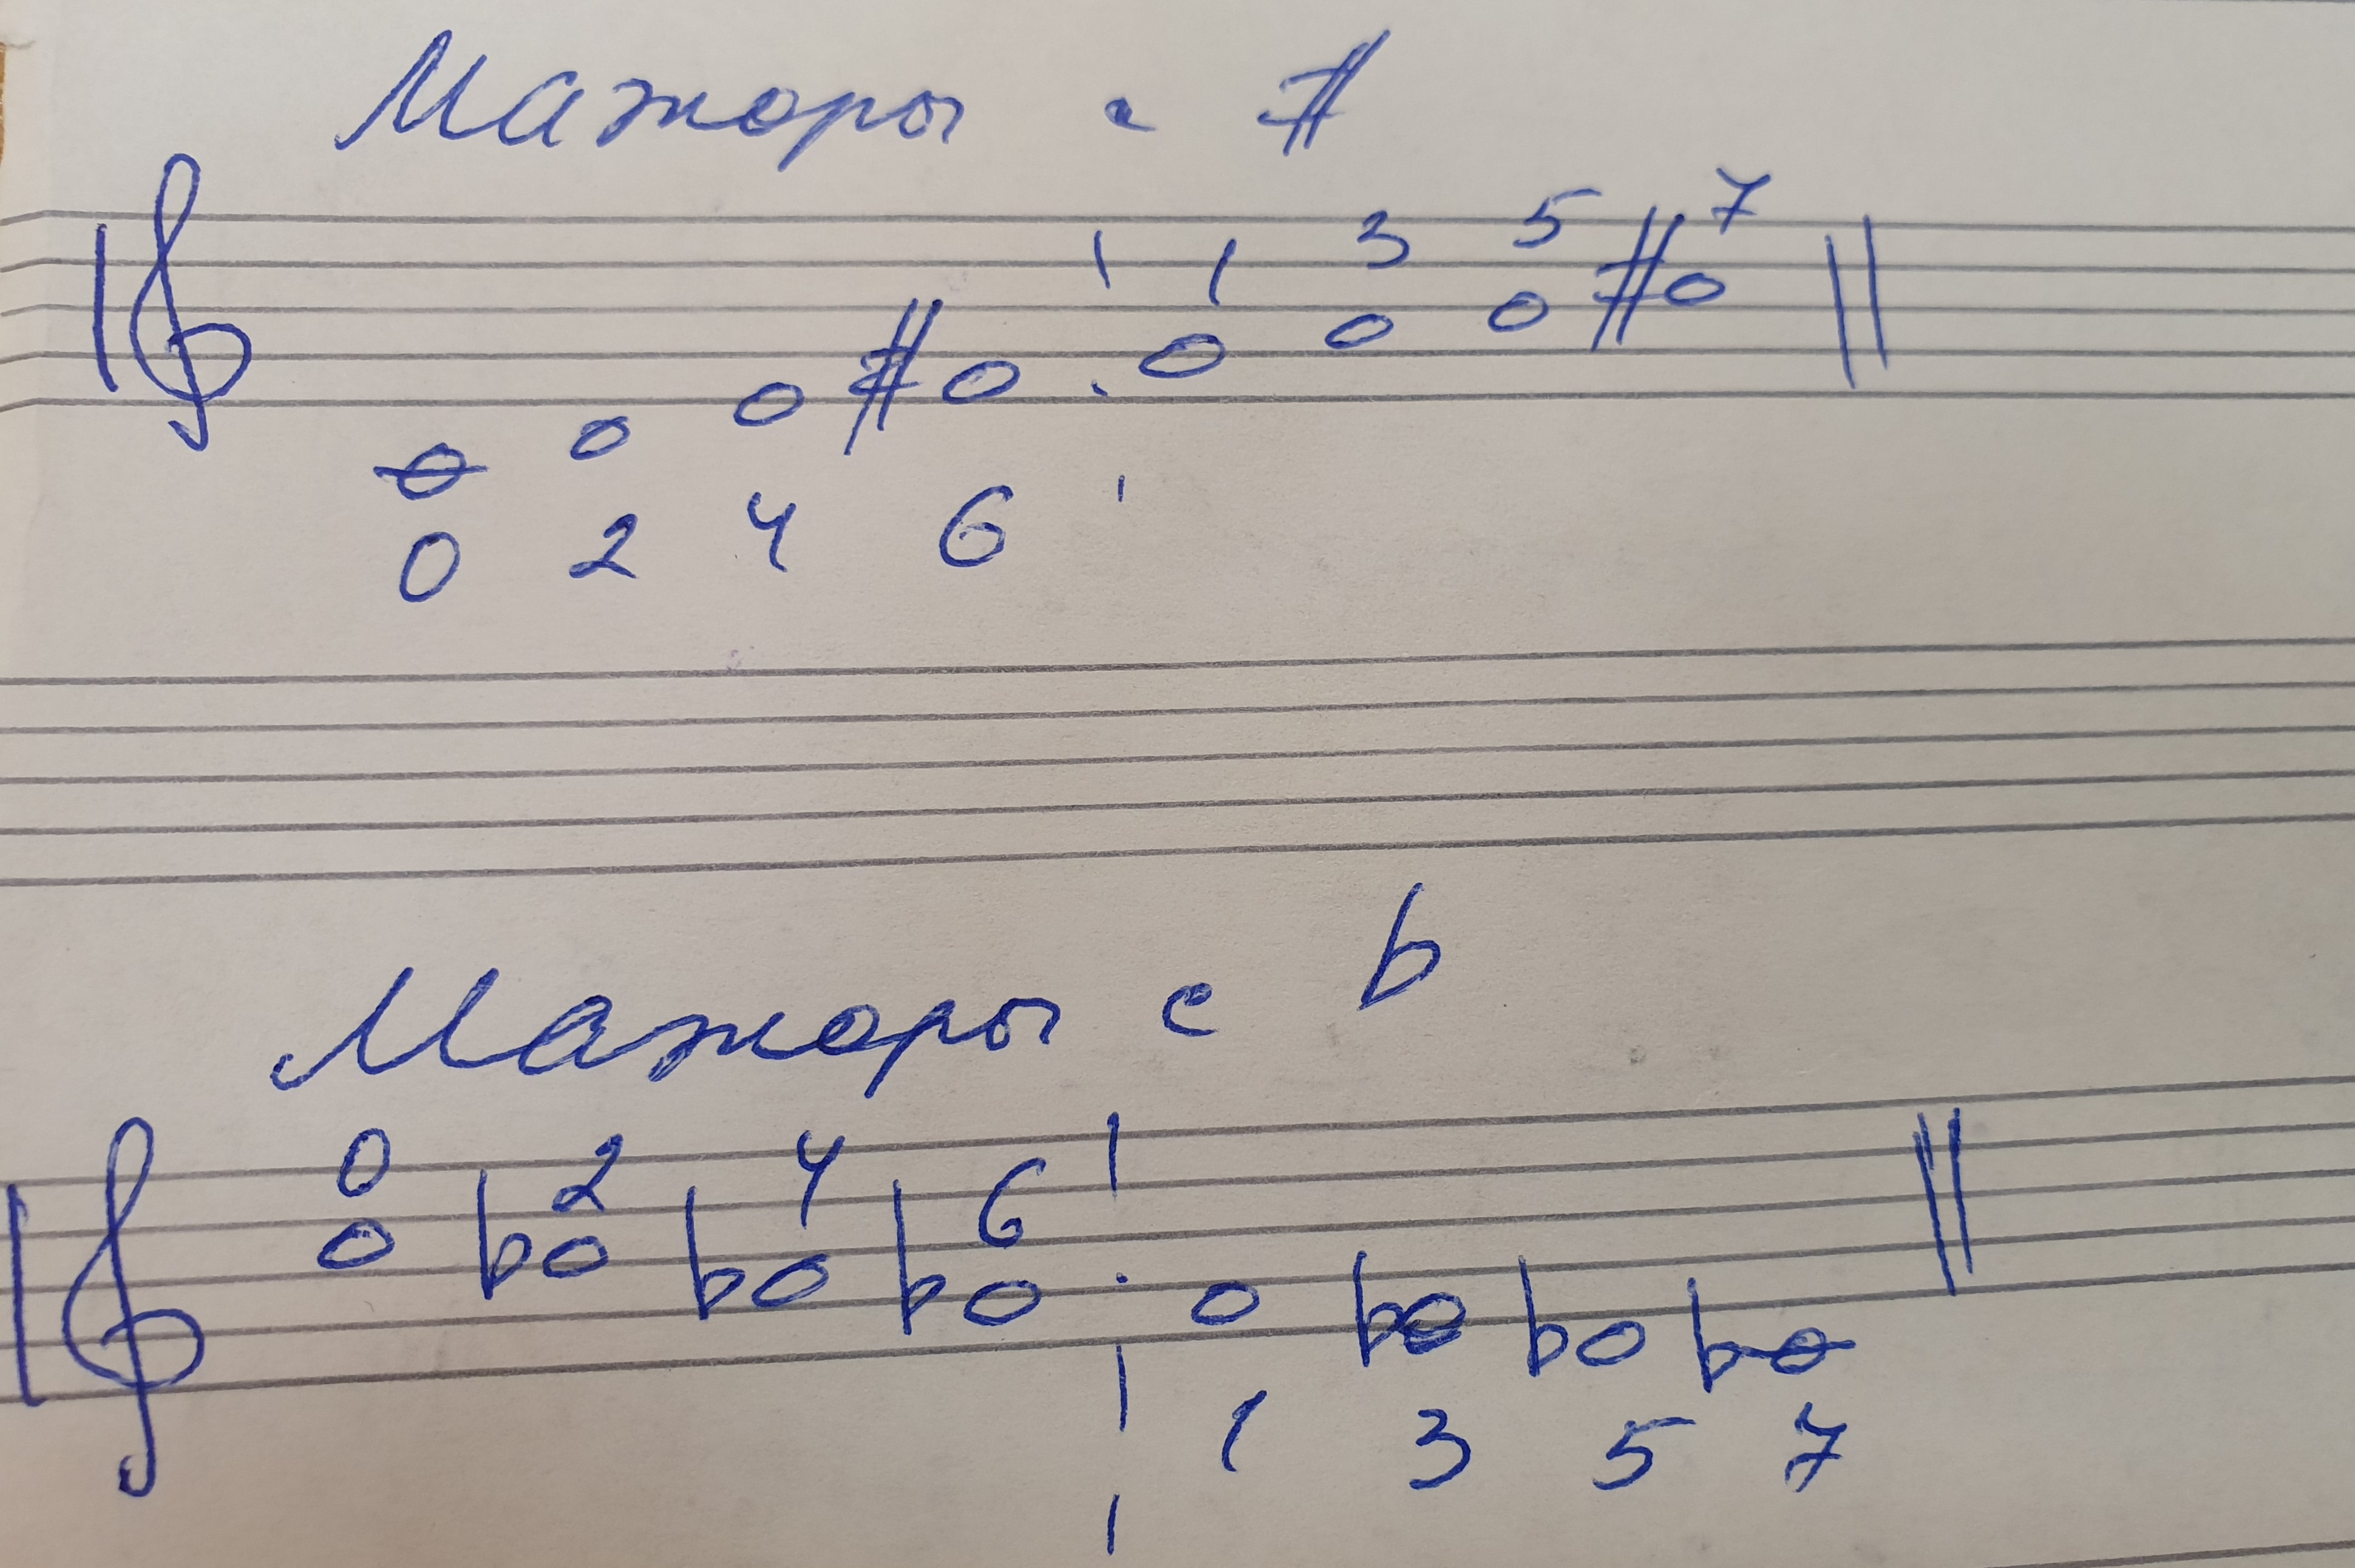 Мажоры с #
1 3 5 7
0 2 4 6
Мажоры с b
0 2 4 6
1 3 5 7